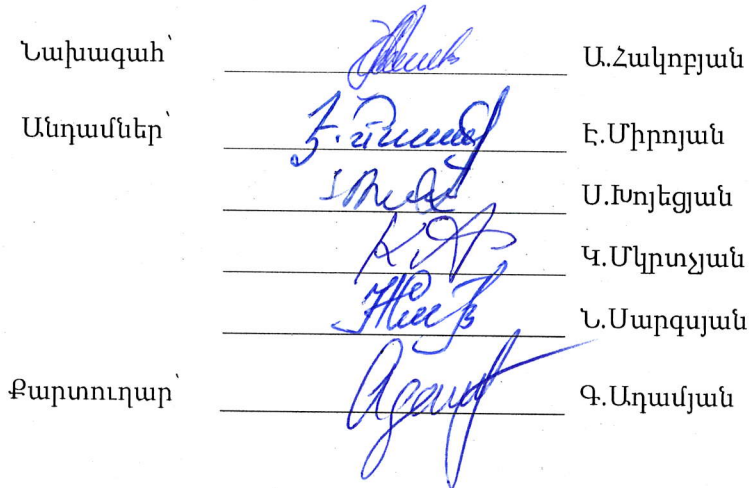 Նախագահ՝ Ա.Հակոբյան
Անդամներ՝ Է.Միրոյան
Ս.Խոյեցյան
Կ.Մկրտչյան
Ն.Սարգսյան
Քարտուղար՝ Գ.Ադամյան